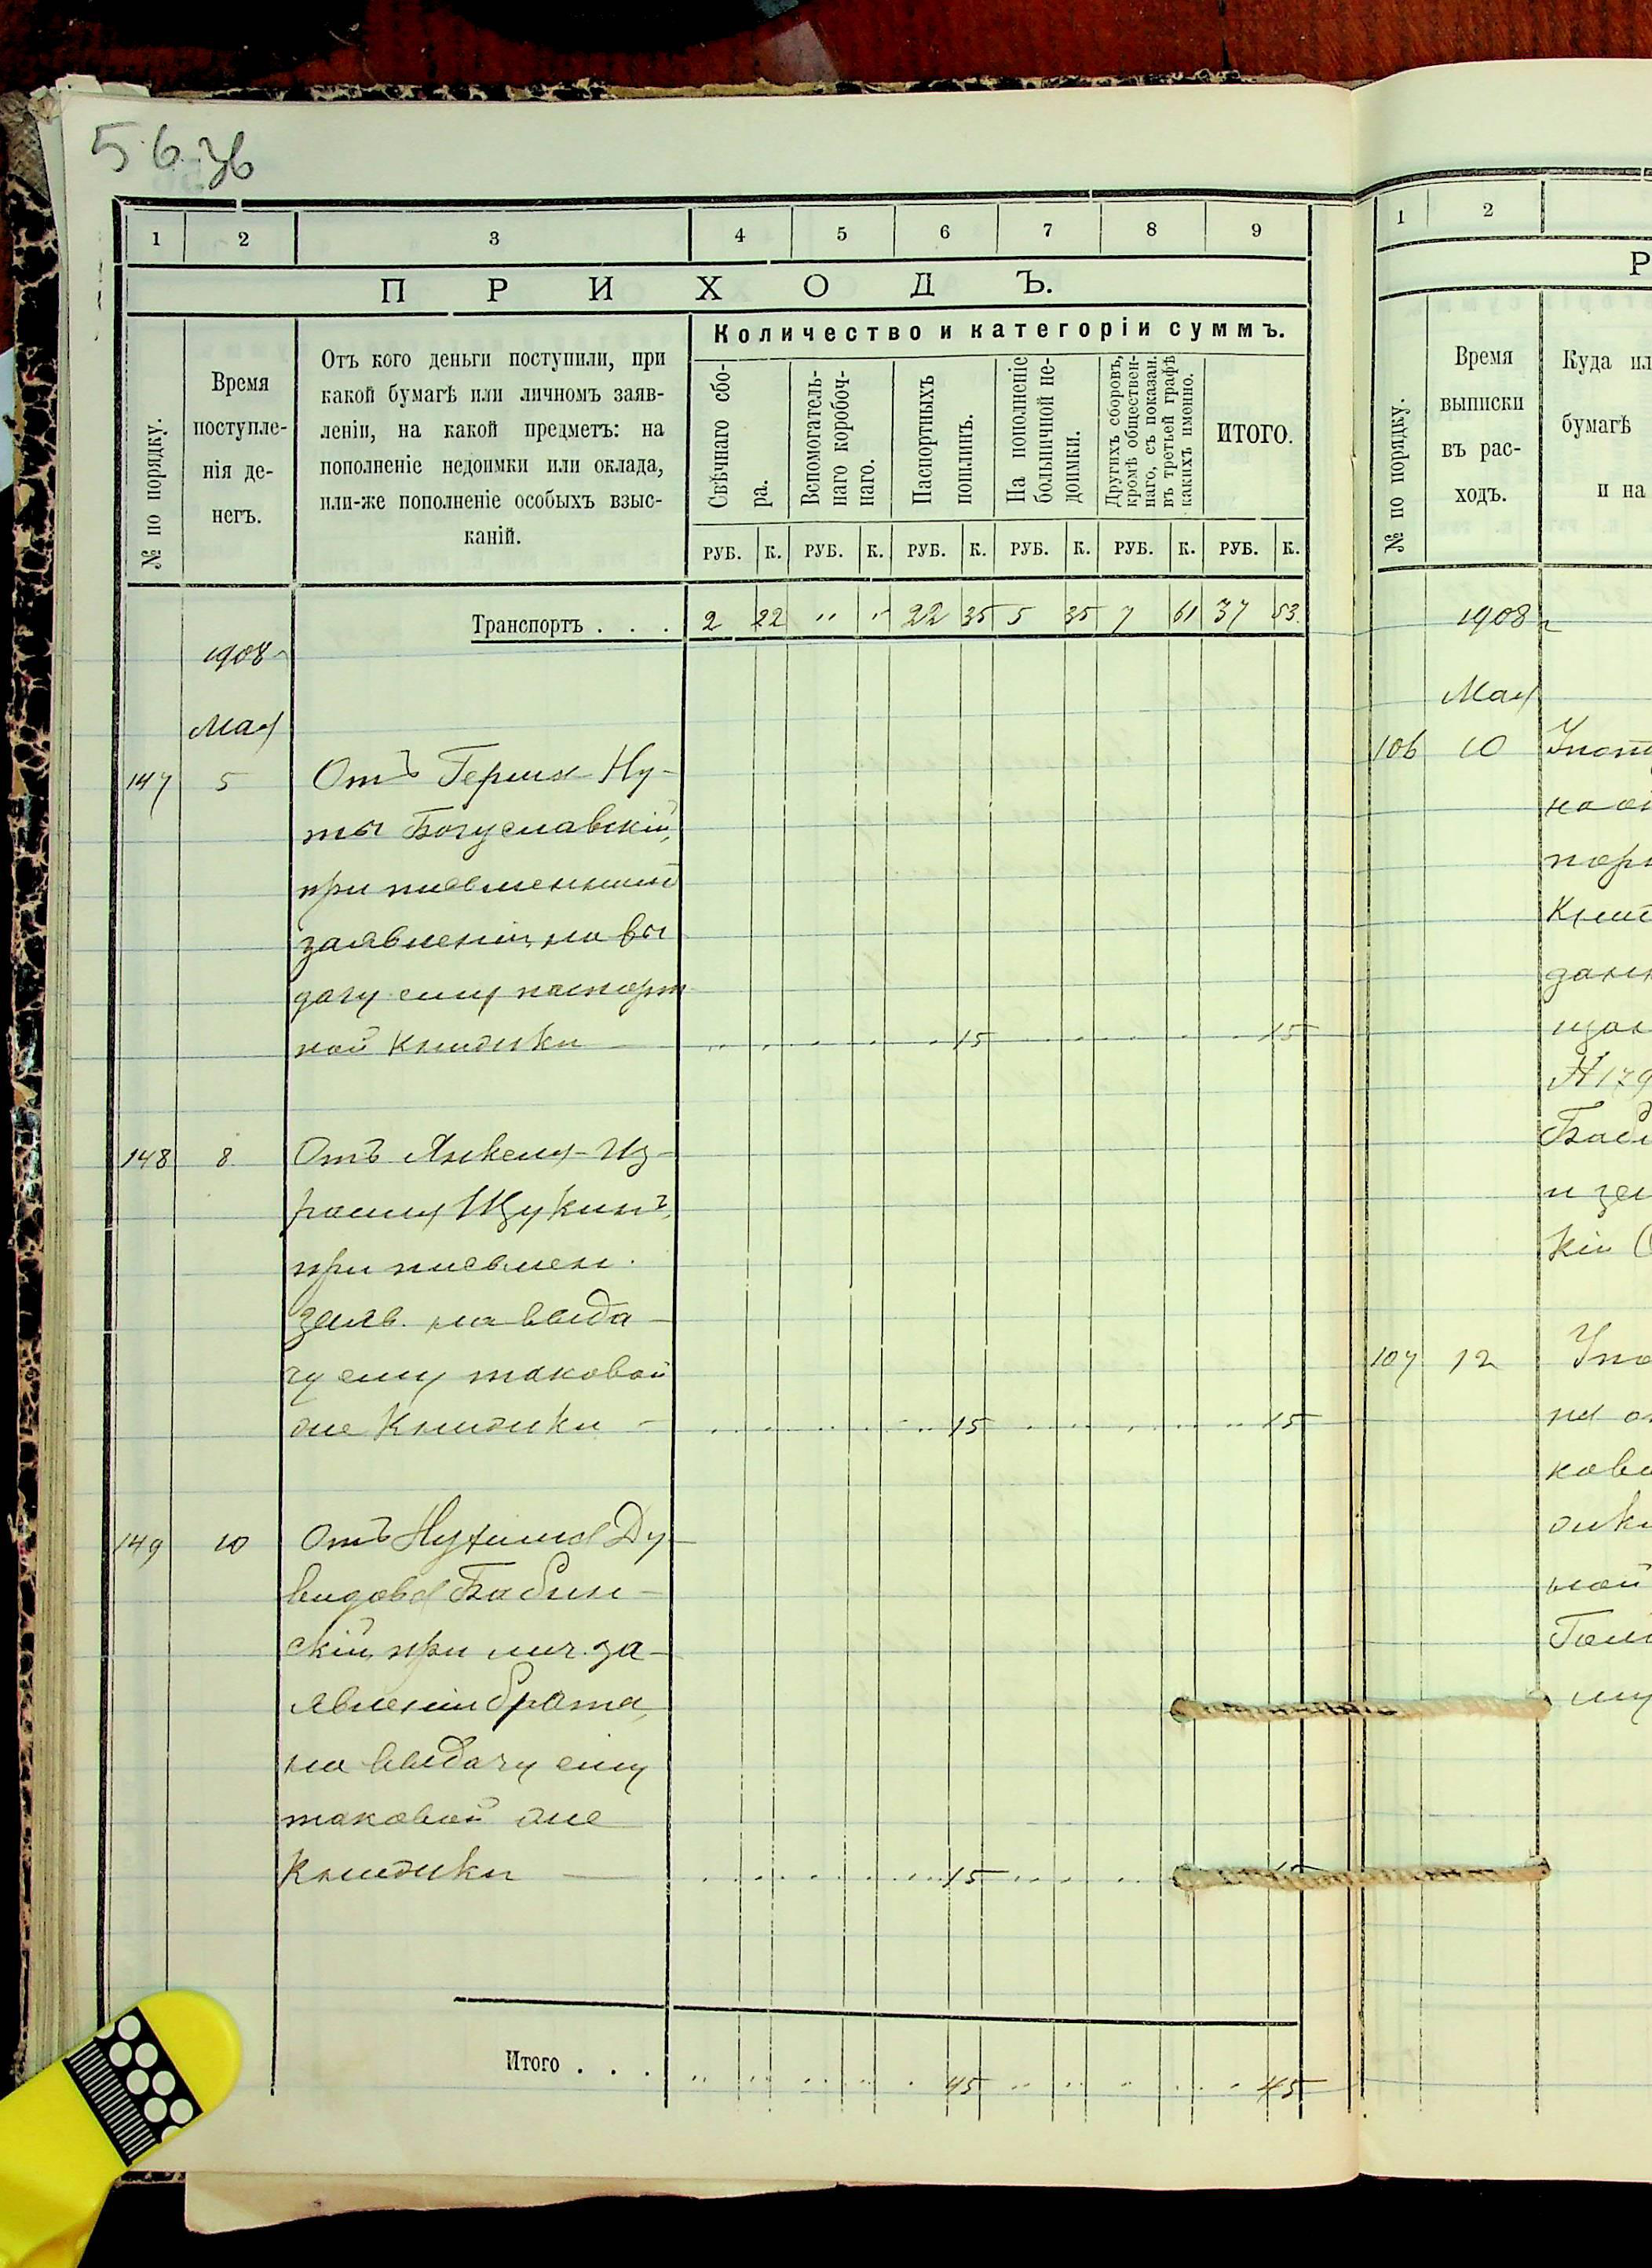 56.
1 2 3 4 5 6 7 8 9
ПРИХОДЪ.
№ по порядку.
Время
поступле-
нія де-
негъ.
Отъ кого деньги поступили, при
какой бумагѣ или личномъ заяв-
леніи, на какой предметъ: на
пополненіе недоимки или оклада,
или-же пополненіе особыхъ взыс-
каній.
Количество и категоріи суммъ.
Свѣчнаго сбо-
ра.
Вспомогатель-
наго коробоч-
наго.
Паспортныхъ
пошлинъ.
На пополненіе
больничной не-
доимки.
Другихъ сборовъ,
кромѣ обществен-
наго, съ показан.
въ третьей графѣ
какихъ именно.
ИТОГО.
РУБ. К. РУБ. К. РУБ. К. РУБ. К. РУБ. К. РУБ. К.
Транспортъ . . . 2 22 " " 22 35 5 35 7 61 37 53
1908 г
Мая
147 5 Отъ Герша Ну-
ты Богуславскій,
при письменномъ
заявленіи, на вы
дачу ему паспорт
ной книжки — 15 15
148 8 Отъ Янкеля-Из-
раиля Щукинъ,
при письмен.
заяв. на выда-
чу ему таковой
же книжки — 15 15
149 10 Отъ Нухима Ду-
видова Бабин-
скій, при лич. за-
явленіи брата,
на выдачу ему
таковой же
книжки — 15 15
Итого . . . 45 45
1 2
Р
№ по порядку.
Время
выписки
въ рас-
ходъ.
Куда ил
бумагѣ
и на
1908 г
Мая
106 10
№ 179
107 12